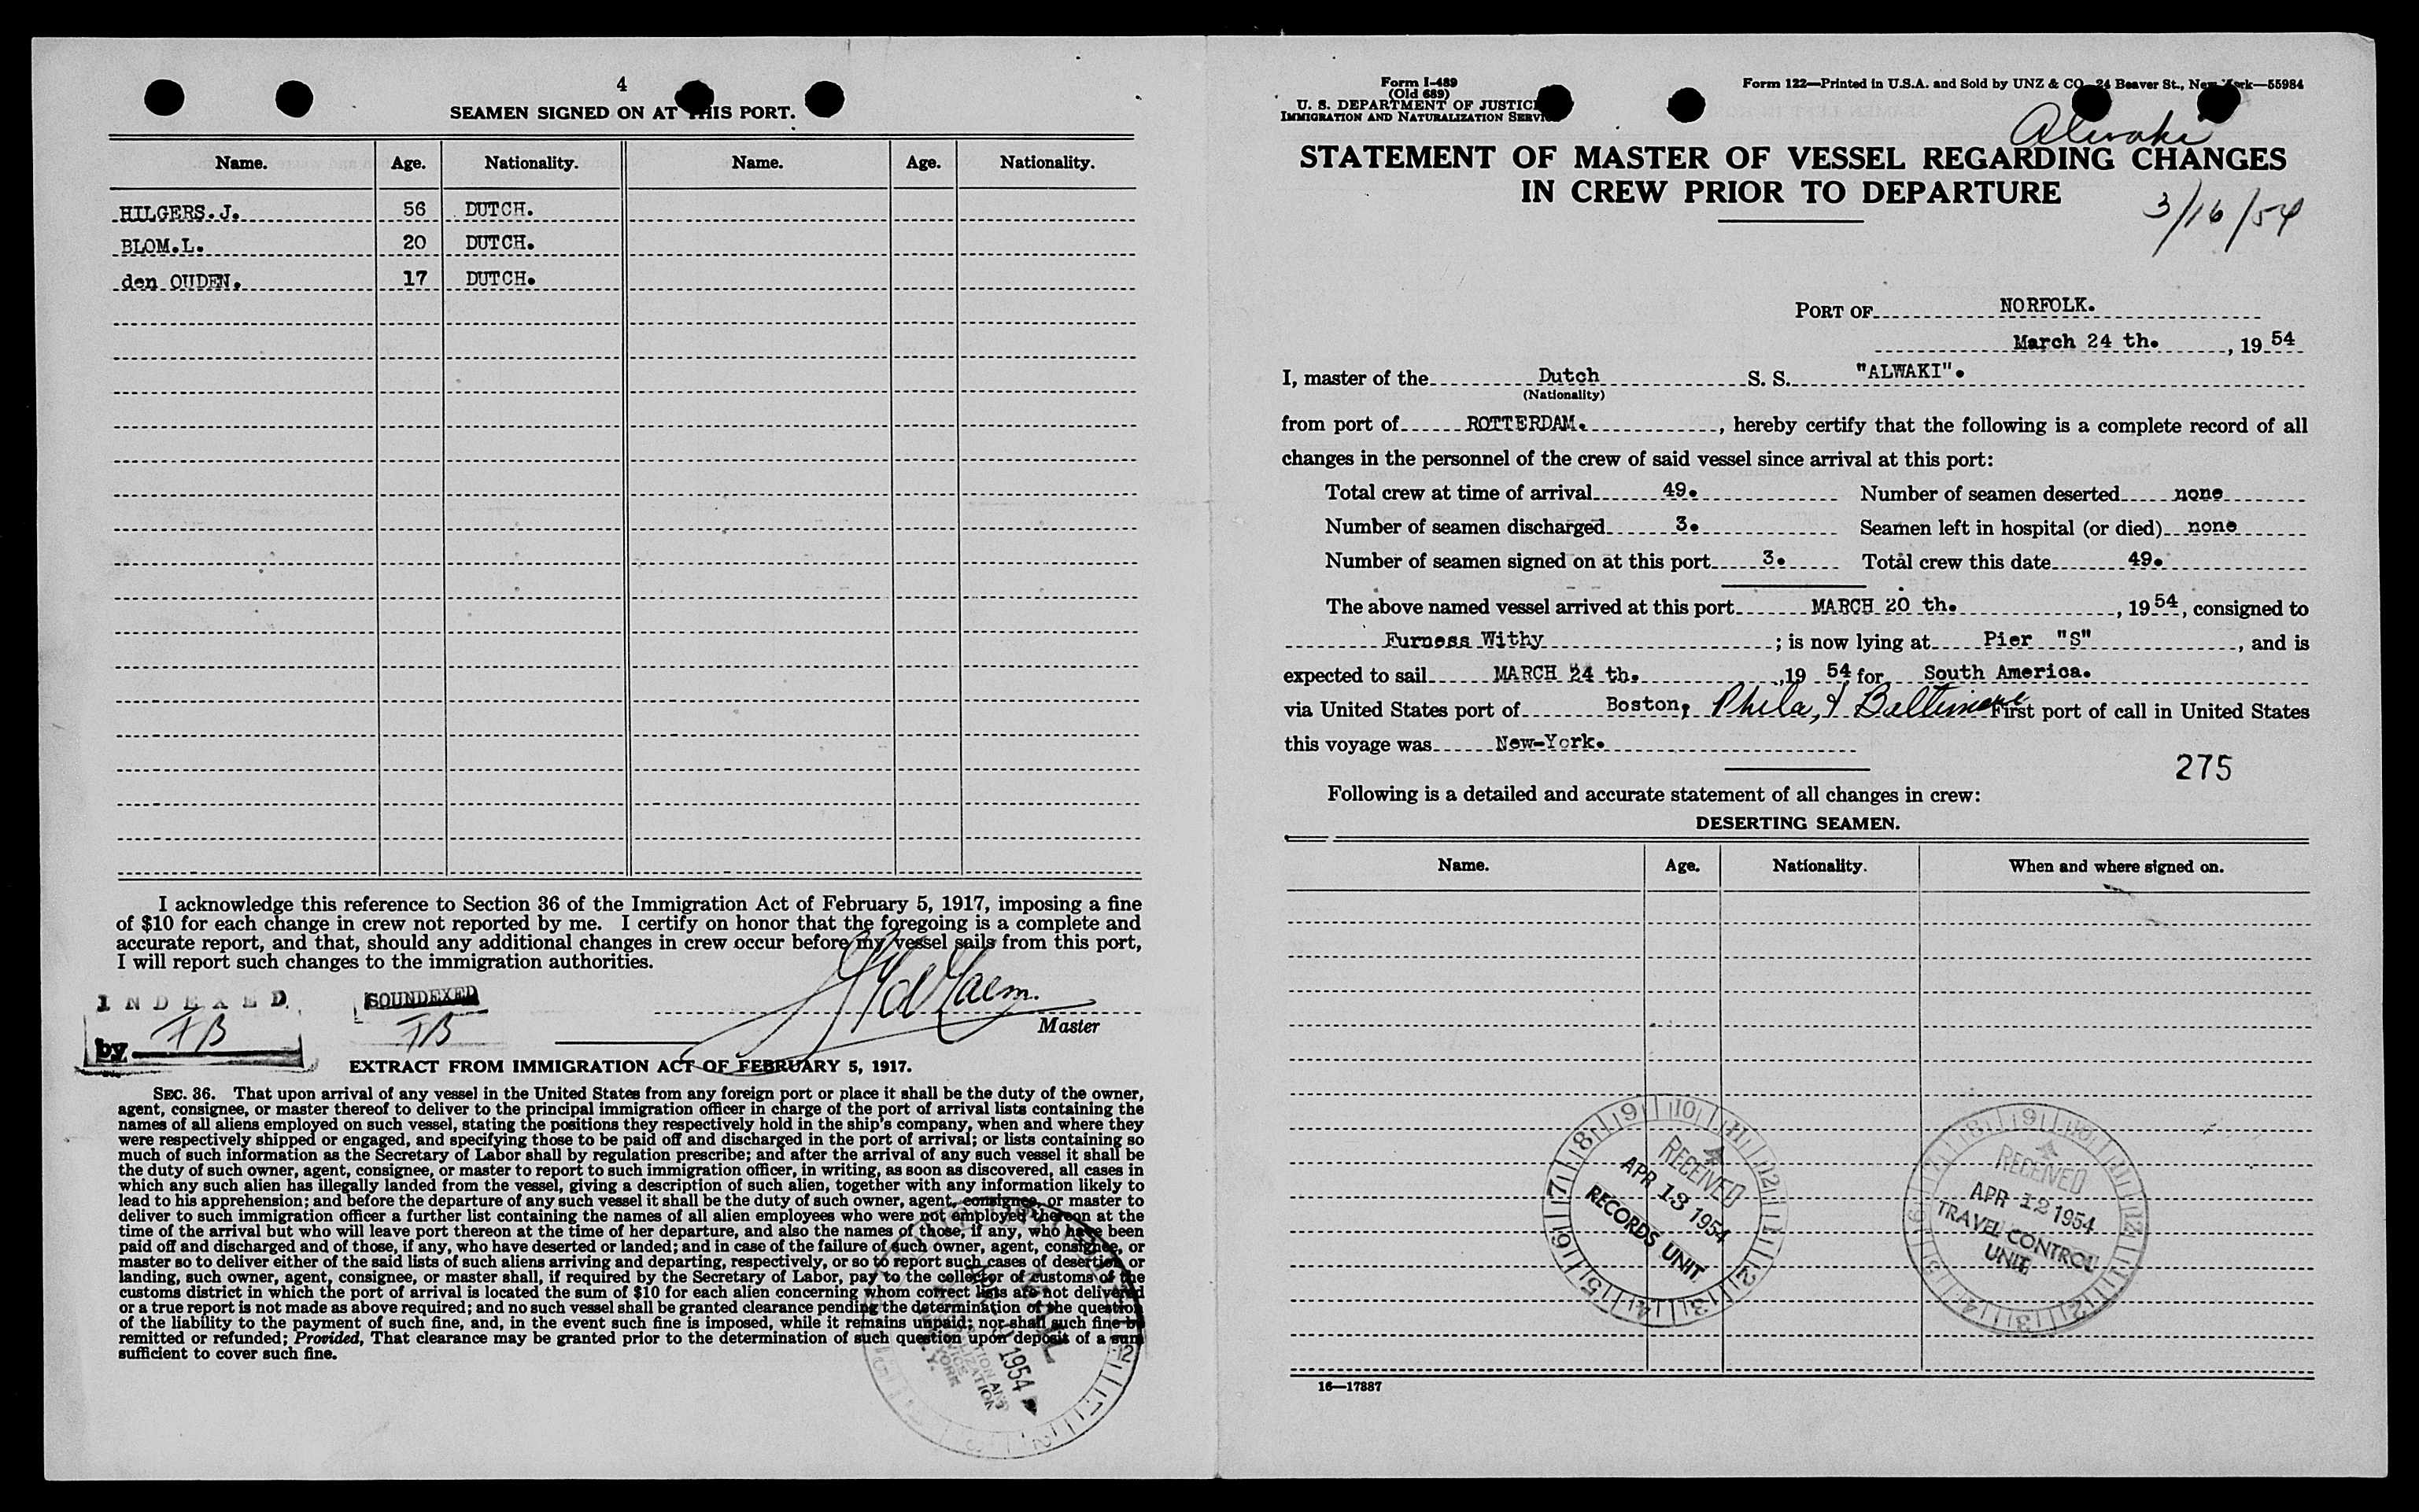 4
SEAMEN SIGNED ON AT THIS PORT.
Name. Age. Nationality. Name. Age. Nationality.
HILGERS.J. 56 DUTCH.
BLOM.L. 20 DUTCH.
den OUDEN. 17 DUTCH.
I acknowledge this reference to Section 36 of the Immigration Act of February 5, 1917, imposing a fine
of $10 for each change in crew not reported by me. I certify on honor that the foregoing is a complete and
accurate report, and that, should any additional changes in crew occur before my vessel sails from this port,
I will report such changes to the immigration authorities.
INDEXED
by FB
SOUNDEXED
FB
Master
EXTRACT FROM IMMIGRATION ACT OF FEBRUARY 5, 1917.
SEC. 36. That upon arrival of any vessel in the United States from any foreign port or place it shall be the duty of the owner,
agent, consignee, or master thereof to deliver to the principal immigration officer in charge of the port of arrival lists containing the
names of all aliens employed on such vessel, stating the positions they respectively hold in the ship's company, when and where they
were respectively shipped or engaged, and specifying those to be paid off and discharged in the port of arrival; or lists containing so
much of such information as the Secretary of Labor shall by regulation prescribe; and after the arrival of any such vessel it shall be
the duty of such owner, agent, consignee, or master to report to such immigration officer, in writing, as soon as discovered, all cases in
which any such alien has illegally landed from the vessel, giving a description of such alien, together with any information likely to
lead to his apprehension; and before the departure of any such vessel it shall be the duty of such owner, agent, consignee, or master to
deliver to such immigration officer a further list containing the names of all alien employees who were not employed thereon at the
time of the arrival but who will leave port thereon at the time of her departure, and also the names of those, if any, who have been
paid off and discharged and of those, if any, who have deserted or landed; and in case of the failure of such owner, agent, consignee, or
master so to deliver either of the said lists of such aliens arriving and departing, respectively, or so to report such cases of desertion or
landing, such owner, agent, consignee, or master shall, if required by the Secretary of Labor, pay to the collector of customs of the
customs district in which the port of arrival is located the sum of $10 for each alien concerning whom correct lists are not delivered
or a true report is not made as above required; and no such vessel shall be granted clearance pending the determination of the question
of the liability to the payment of such fine, and, in the event such fine is imposed, while it remains unpaid; nor shall such fine be
remitted or refunded; Provided, That clearance may be granted prior to the determination of such question upon deposit of a sum
sufficient to cover such fine.
MAIL
1954
Form I-489
(Old 689)
U. S. DEPARTMENT OF JUSTICE
IMMIGRATION AND NATURALIZATION SERVICE
Form 122—Printed in U.S.A. and Sold by UNZ & CO. 24 Beaver St., New York—55984
Alwaki
STATEMENT OF MASTER OF VESSEL REGARDING CHANGES
IN CREW PRIOR TO DEPARTURE
3/16/54
PORT OF NORFOLK.
March 24 th., 19 54
I, master of the Dutch S. S. "ALWAKI".
(Nationality)
from port of ROTTERDAM., hereby certify that the following is a complete record of all
changes in the personnel of the crew of said vessel since arrival at this port:
Total crew at time of arrival 49. Number of seamen deserted none
Number of seamen discharged 3. Seamen left in hospital (or died) none
Number of seamen signed on at this port 3. Total crew this date 49.
The above named vessel arrived at this port MARCH 20 th., 19 54, consigned to
Furness Withy; is now lying at Pier "S", and is
expected to sail MARCH 24 th., 19 54, for South America.
via United States port of Boston, Phila, & Baltimore First port of call in United States
this voyage was New-York.
275
Following is a detailed and accurate statement of all changes in crew:
DESERTING SEAMEN.
Name. Age. Nationality. When and where signed on.
RECEIVED
APR 13 1954
RECORDS UNIT
RECEIVED
APR 12 1954
TRAVEL CONTROL
UNIT
16—17887